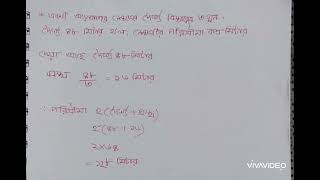 * একটি আয়তাকার ক্ষেত্রের দৈর্ঘ্য বিস্তারের ৩ গুণ।
দৈর্ঘ্য ৪৮ মিটার হলে, ক্ষেত্রটির পরিসীমা কত মিটার
দেওয়া আছে দৈর্ঘ্য ৪৮ মিটার
প্রস্থ ৪৮/৩ = ১৬ মিটার
∴ পরিসীমা ২(দৈর্ঘ্য + প্রস্থ)
২(৪৮ + ১৬)
২×৬৪
= ১২৮ মিটার
VIVAVIDEO